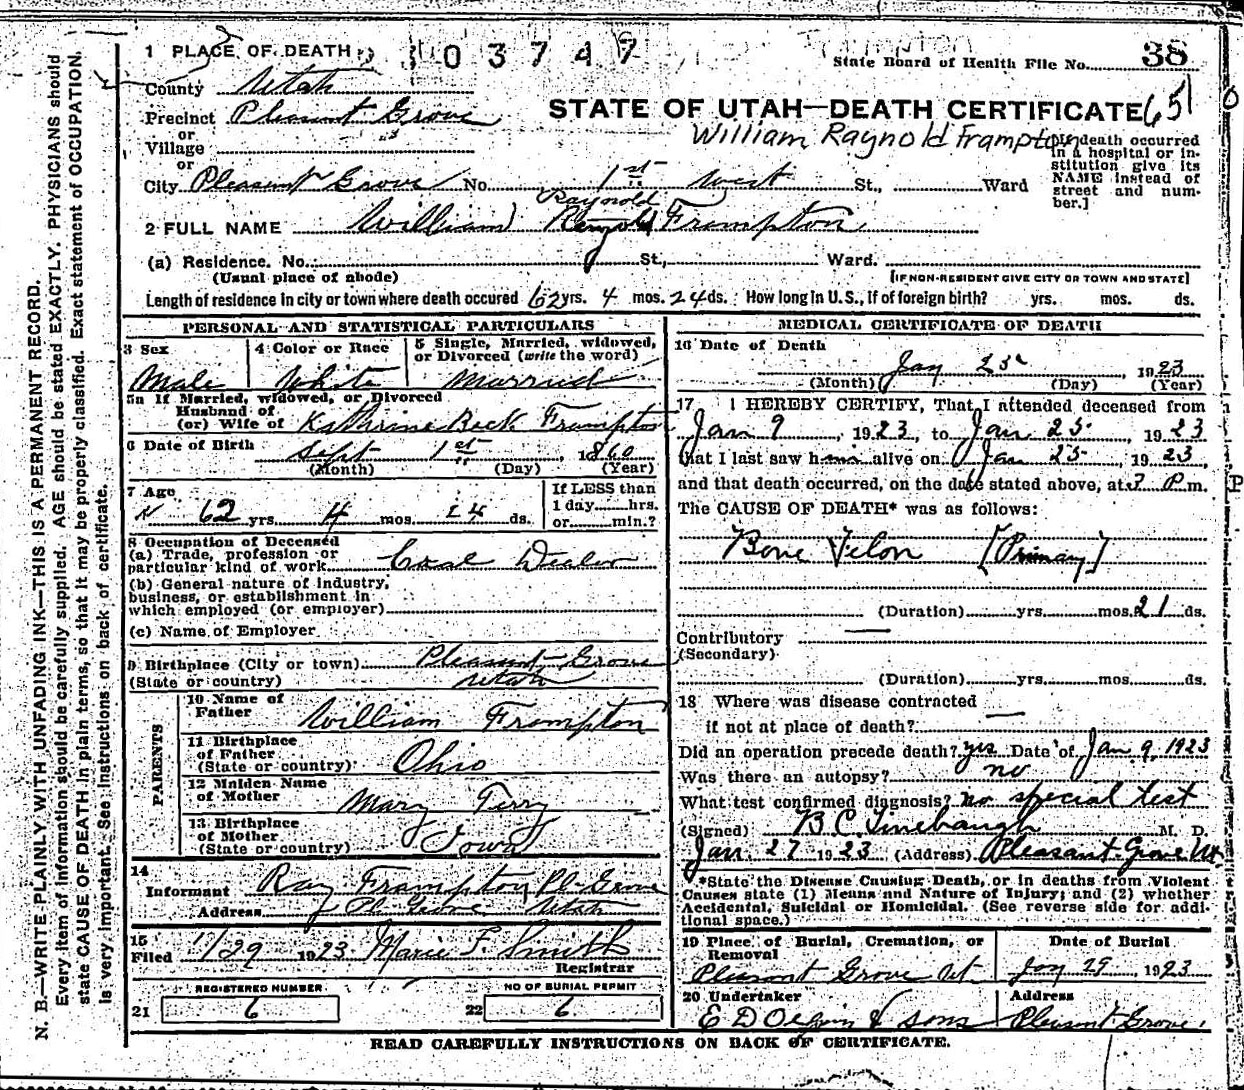 1 PLACE OF DEATH
3 0 3 7 4 7
State Board of Health File No. 38
County Utah
651
Precinct Pleasant Grove
STATE OF UTAH—DEATH CERTIFICATE
William Raynold Frampton
or
Village
or
City Pleasant Grove No. 1st west St., Ward
[If death occurred in a hospital or institution give its NAME instead of street and number.]
Raynold
2 FULL NAME William Frampton
(a) Residence. No. St., Ward.
(Usual place of abode) [IF NON-RESIDENT GIVE CITY OR TOWN AND STATE]
Length of residence in city or town where death occured 62 yrs. 4 mos. 24 ds. How long in U.S., if of foreign birth? yrs. mos. ds.
PERSONAL AND STATISTICAL PARTICULARS
3 Sex
Male
4 Color or Race
White
5 Single, Married, widowed,
or Divorced (write the word)
Married
5a If Married, widowed, or Divorced
Husband of
(or) Wife of Kathrine Beck Frampton
6 Date of Birth Sept 1st, 1860
(Month) (Day) (Year)
7 Age
62 yrs. 4 mos. 24 ds.
If LESS than
1 day hrs.
or min.?
8 Occupation of Deceased
(a) Trade, profession or
particular kind of work Coal Dealer
(b) General nature of industry,
business, or establishment in
which employed (or employer)
(c) Name of Employer
9 Birthplace (City or town) Pleasant Grove
(State or country) Utah
PARENTS
10 Name of
Father William Frampton
11 Birthplace
of Father
(State or country) Ohio
12 Maiden Name
of Mother Mary Terry
13 Birthplace
of Mother
(State or country) Iowa
14
Informant Ray Frampton Pl-Grove
Address Pl Grove Utah
15
Filed 1/29 1923 Marie F. Smith
Registrar
REGISTERED NUMBER
21 6
NO OF BURIAL PERMIT
22 6
MEDICAL CERTIFICATE OF DEATH
16 Date of Death
Jan 25, 1923
(Month) (Day) (Year)
17 I HEREBY CERTIFY, That I attended deceased from
Jan 9, 1923, to Jan 25, 1923
that I last saw him alive on Jan 25, 1923,
and that death occurred, on the date stated above, at 7 P.m.
The CAUSE OF DEATH* was as follows:
Bone Felon [Primary]
(Duration) yrs. mos. 21 ds.
Contributory
(Secondary)
(Duration) yrs. mos. ds.
18 Where was disease contracted
if not at place of death?
Did an operation precede death? yes Date of Jan 9, 1923
Was there an autopsy? no
What test confirmed diagnosis? no special test
(Signed) B C Linebaugh M. D.
Jan. 27 1923 (Address) Pleasant Grove Ut
*State the Disease Causing Death, or in deaths from Violent
Causes state (1) Means and Nature of Injury; and (2) whether
Accidental, Suicidal or Homicidal. (See reverse side for addi-
tional space.)
19 Place of Burial, Cremation, or
Removal
Pleasant Grove Ut
Date of Burial
Jan 29, 1923
20 Undertaker
E D Olpin & sons
Address
Pleasant Grove
READ CAREFULLY INSTRUCTIONS ON BACK OF CERTIFICATE.
N. B.—WRITE PLAINLY WITH UNFADING INK—THIS IS A PERMANENT RECORD.
Every item of information should be carefully supplied. AGE should be stated EXACTLY. PHYSICIANS should
state CAUSE OF DEATH in plain terms, so that it may be properly classified. Exact statement of OCCUPATION
is very important. See instructions on back of certificate.